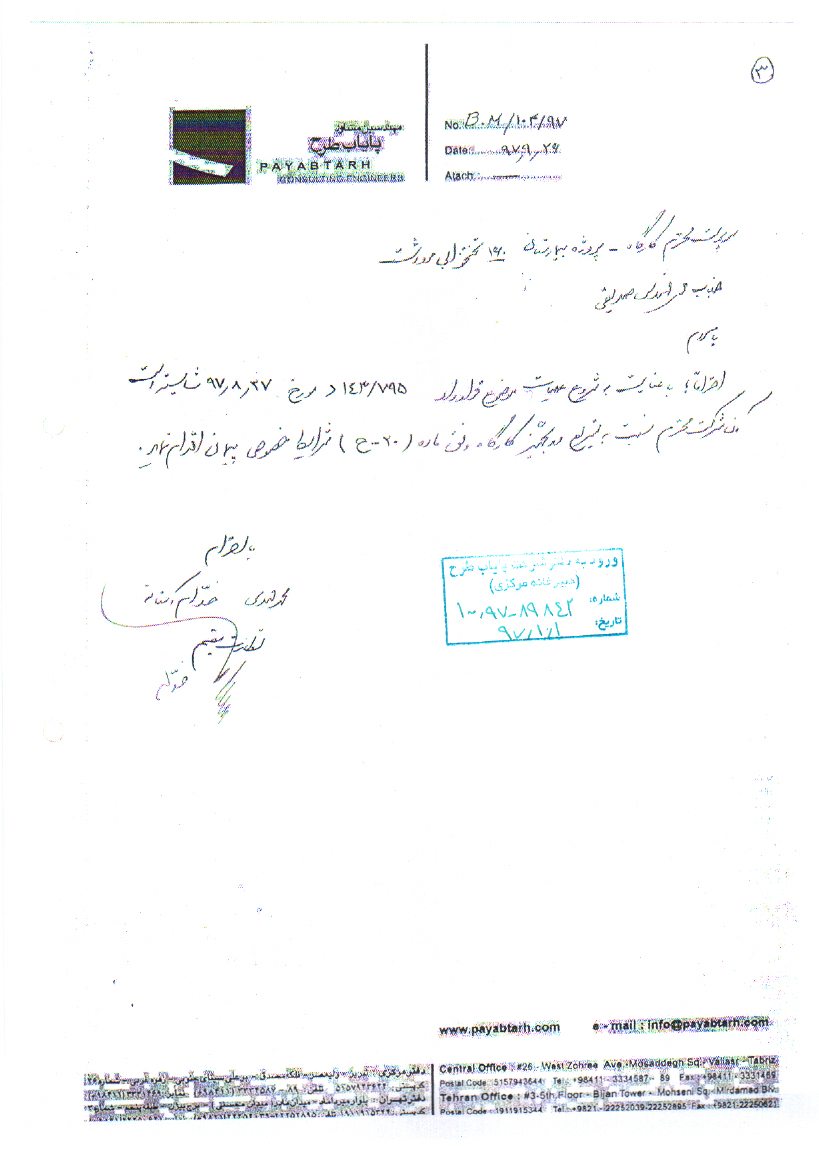 ۳
مهندسین مشاور
پایاب طرح
PAYABTARH
CONSULTING ENGINEERS
No. B.M/104/97
Date: ۹۷,۹,۲۶
Atach: —
سرپرست محترم کارگاه - پروژه بیمارستان ۱۶۰ تختخوابی مرودشت
جناب آقای مهندس صدیقی
با سلام
احتراماً؛ با عنایت به شروع عملیات موضوع قرارداد ۱۴۳/۷۹۵ د مورخ ۹۷,۸,۲۷ شایسته است
آن شرکت محترم نسبت به تجهیز کارگاه وفق ماده (۲۰-ح) شرایط خصوصی پیمان اقدام نمایید.
با احترام
محمدمهدی
نظارت مقیم
ورود به دفتر شرکت پایاب طرح
(دبیرخانه مرکزی)
شماره: ۱۰,۹۷-۸۹۸۴۲
تاریخ: ۹۷,۱۰,۱
www.payabtarh.com e-mail : info@payabtarh.com
Central Office : #26 - West Zohree Ave.-Mosaddegh Sq.-Valiasr - Tabriz
Postal Code : 5157943644 Tel : +98411 - 3334587 - 89 Fax : +98411 - 3331469
Tehran Office : #3-5th.Floor - Bijan Tower - Mohseni Sq.-Mirdamad Blv.
Postal Code : 1911915344 Tel : +9821 - 22252039-22252895 Fax : +9821-22250621